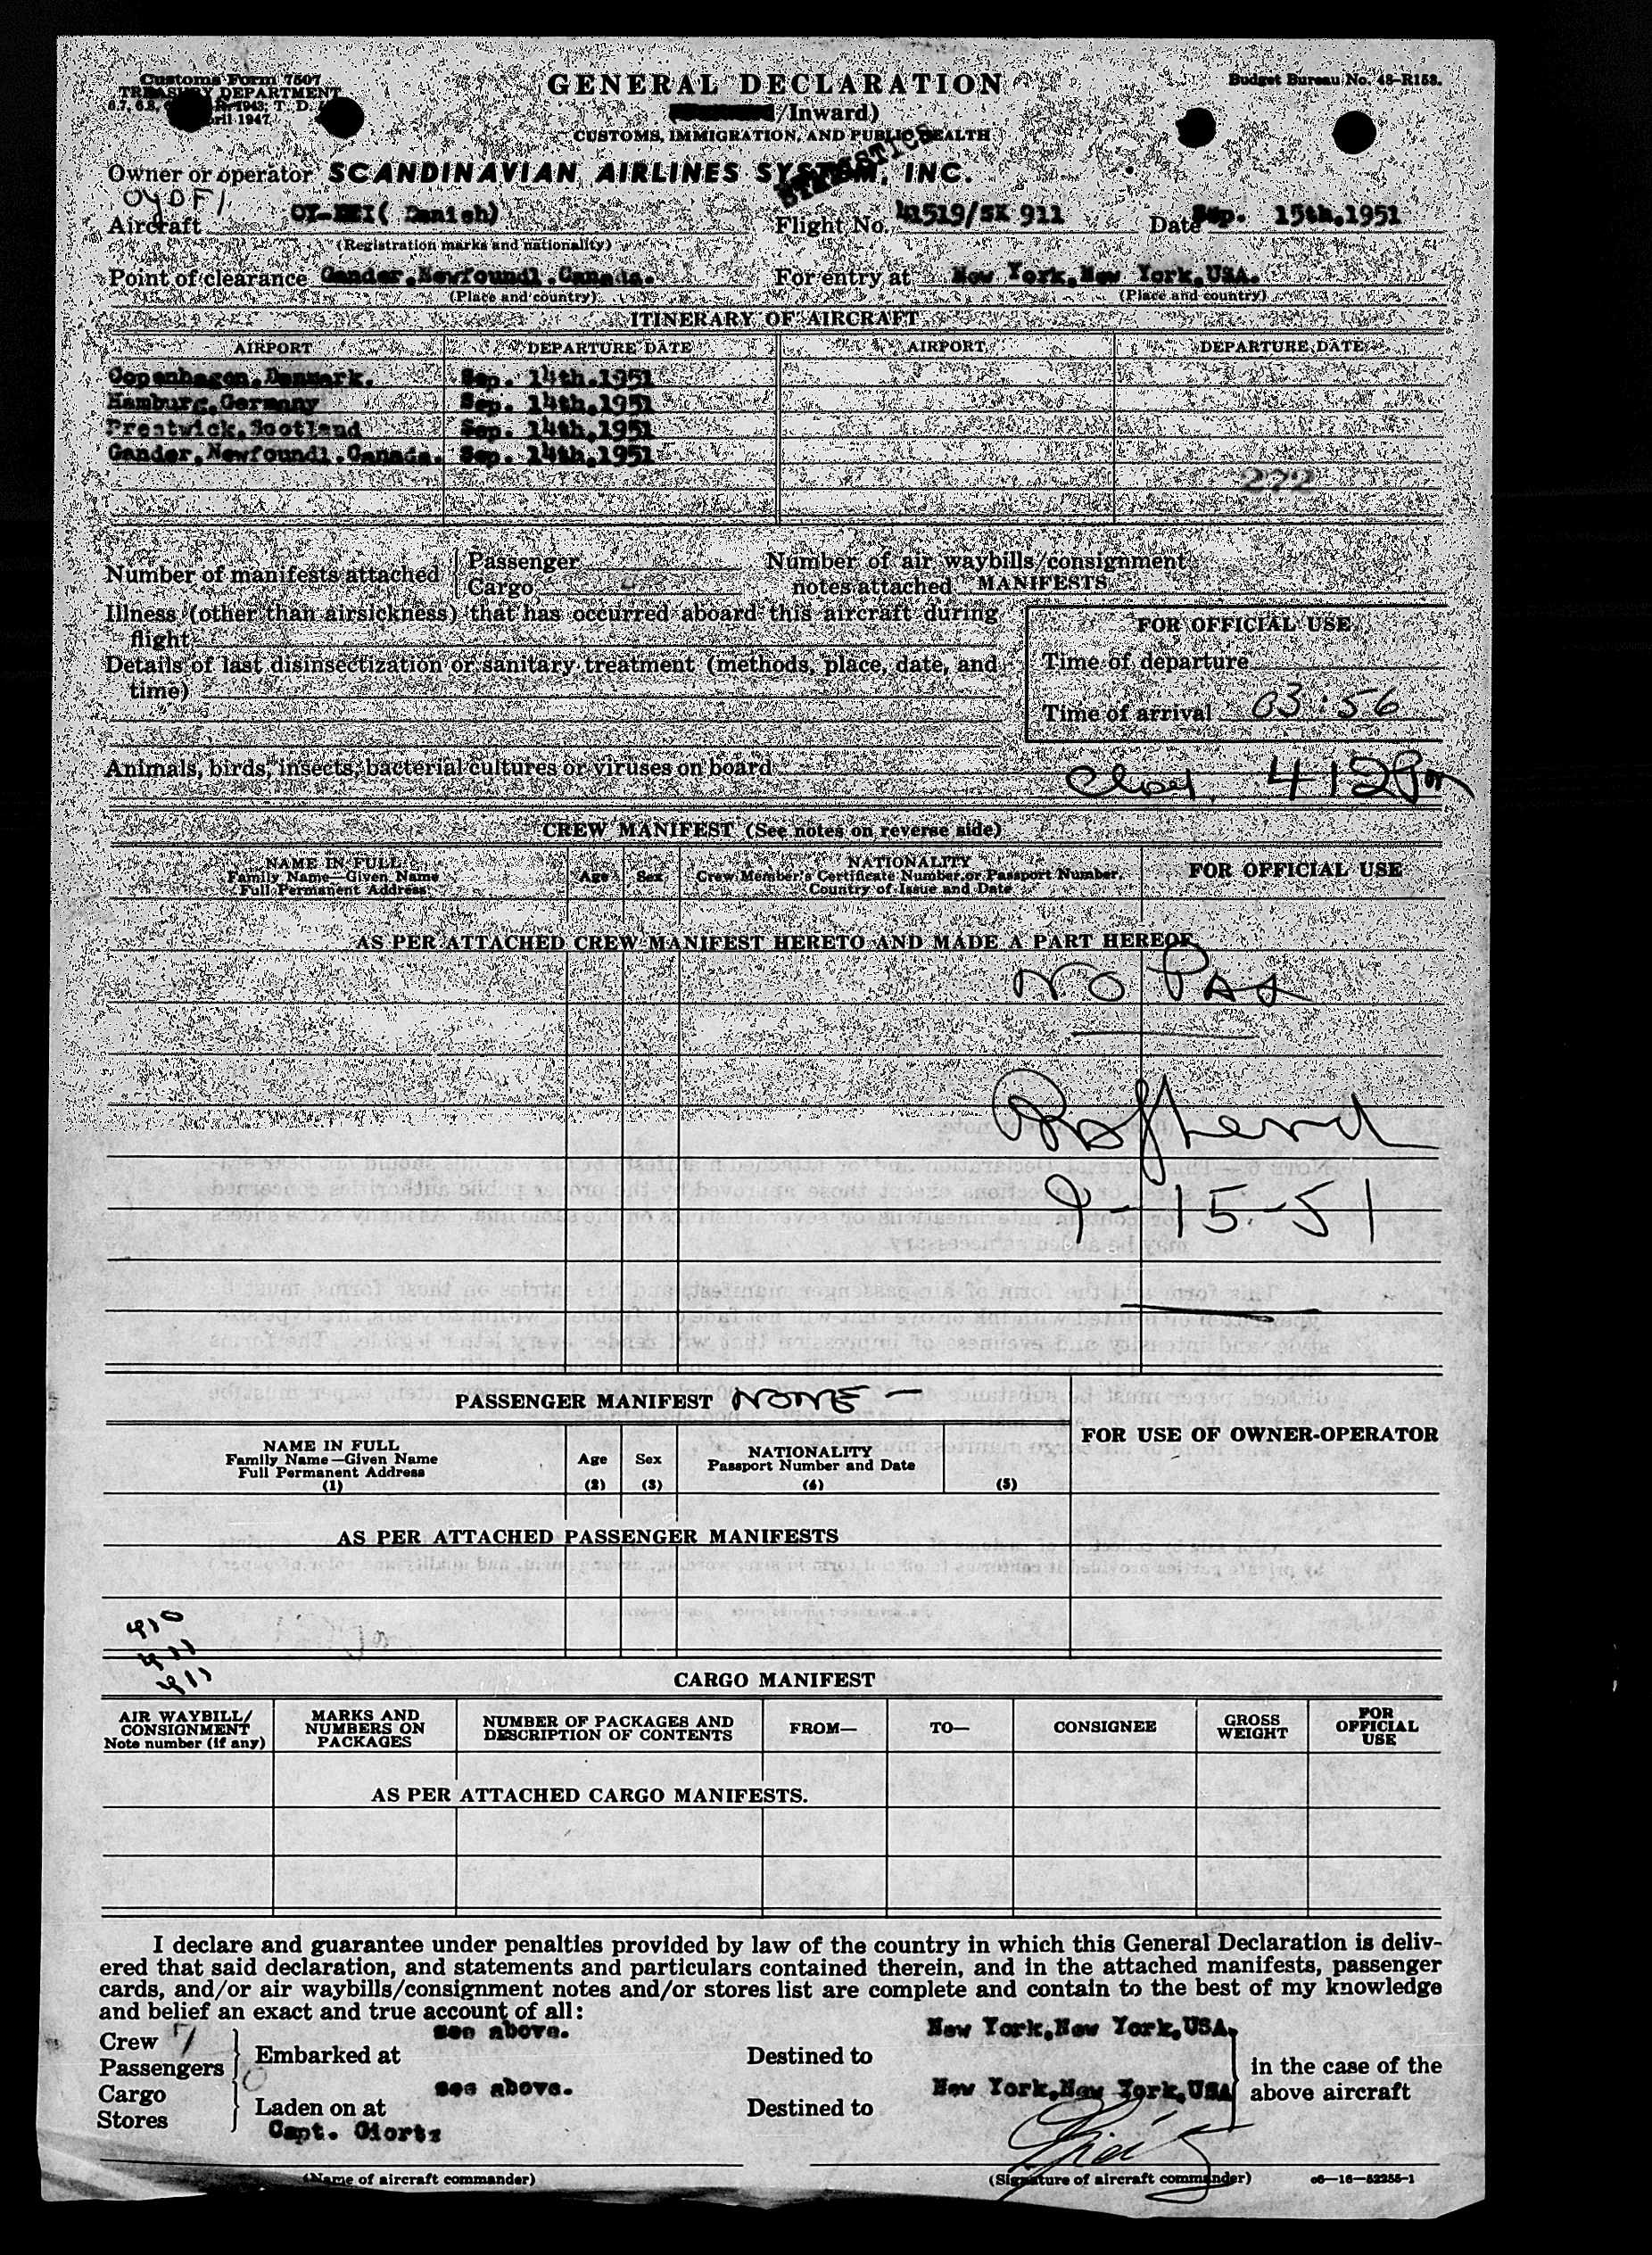 Customs Form 7507
TREASURY DEPARTMENT
1943; T. D.
April 1947
Budget Bureau No. 48-R158.
GENERAL DECLARATION
/Inward)
CUSTOMS, IMMIGRATION, AND PUBLIC HEALTH
Owner or operator SCANDINAVIAN AIRLINES SYSTEM, INC.
OYDFI
Aircraft (Danish) Flight No. 41519/SK 911 Date Sep. 15th,1951
(Registration marks and nationality)
Point of clearance Gander,Newfoundl.Canada. For entry at New York,New York,USA.
(Place and country) (Place and country)
ITINERARY OF AIRCRAFT
AIRPORT DEPARTURE DATE AIRPORT DEPARTURE DATE
Copenhagen,Denmark. Sep. 14th.1951
Hamburg,Germany Sep. 14th,1951
Prestwick,Scotland Sep. 14th,1951
Gander,Newfoundl.Canada. Sep. 14th,1951
272
Number of manifests attached Passenger
Cargo
Number of air waybills/consignment
notes attached MANIFESTS
Illness (other than airsickness) that has occurred aboard this aircraft during
flight
Details of last disinsectization or sanitary treatment (methods, place, date, and
time)
FOR OFFICIAL USE
Time of departure
Time of arrival 03:56
Animals, birds, insects, bacterial cultures or viruses on board
412
CREW MANIFEST (See notes on reverse side)
NAME IN FULL
Family Name—Given Name
Full Permanent Address
Age Sex
NATIONALITY
Crew Member's Certificate Number or Passport Number,
Country of Issue and Date
FOR OFFICIAL USE
AS PER ATTACHED CREW MANIFEST HERETO AND MADE A PART HEREOF
NO PAS
9-15-51
PASSENGER MANIFEST NONE -
FOR USE OF OWNER-OPERATOR
NAME IN FULL
Family Name—Given Name
Full Permanent Address
(1)
Age
(2)
Sex
(3)
NATIONALITY
Passport Number and Date
(4)
(5)
AS PER ATTACHED PASSENGER MANIFESTS
910
911
911
CARGO MANIFEST
AIR WAYBILL/
CONSIGNMENT
Note number (if any)
MARKS AND
NUMBERS ON
PACKAGES
NUMBER OF PACKAGES AND
DESCRIPTION OF CONTENTS
FROM—
TO—
CONSIGNEE
GROSS
WEIGHT
FOR
OFFICIAL
USE
AS PER ATTACHED CARGO MANIFESTS.
I declare and guarantee under penalties provided by law of the country in which this General Declaration is deliv-
ered that said declaration, and statements and particulars contained therein, and in the attached manifests, passenger
cards, and/or air waybills/consignment notes and/or stores list are complete and contain to the best of my knowledge
and belief an exact and true account of all:
Crew 7
Passengers 0
Cargo
Stores
see above.
Embarked at
see above.
Laden on at
New York,New York,USA.
Destined to
New York,New York,USA
Destined to
in the case of the
above aircraft
Capt. Giortz
(Name of aircraft commander)
(Signature of aircraft commander)
c6—16—52255-1